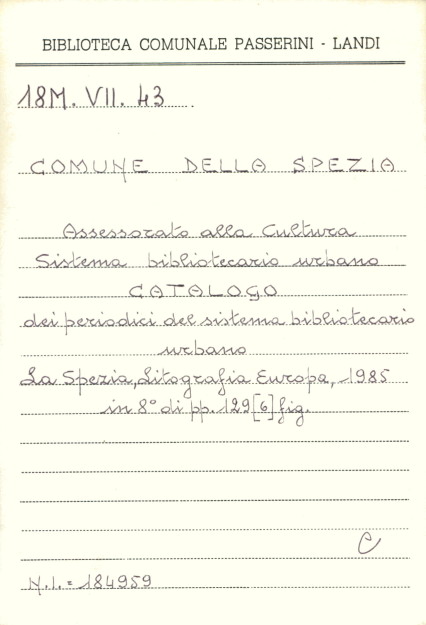 BIBLIOTECA COMUNALE PASSERINI - LANDI
18M. VII. 43
COMUNE DELLA SPEZIA
Assessorato alla Cultura
Sistema bibliotecario urbano
CATALOGO
dei periodici del sistema bibliotecario
urbano
La Spezia, Litografia Europa, 1985
in 8° di pp. 129[6] fig.
C
N.I. = 184959